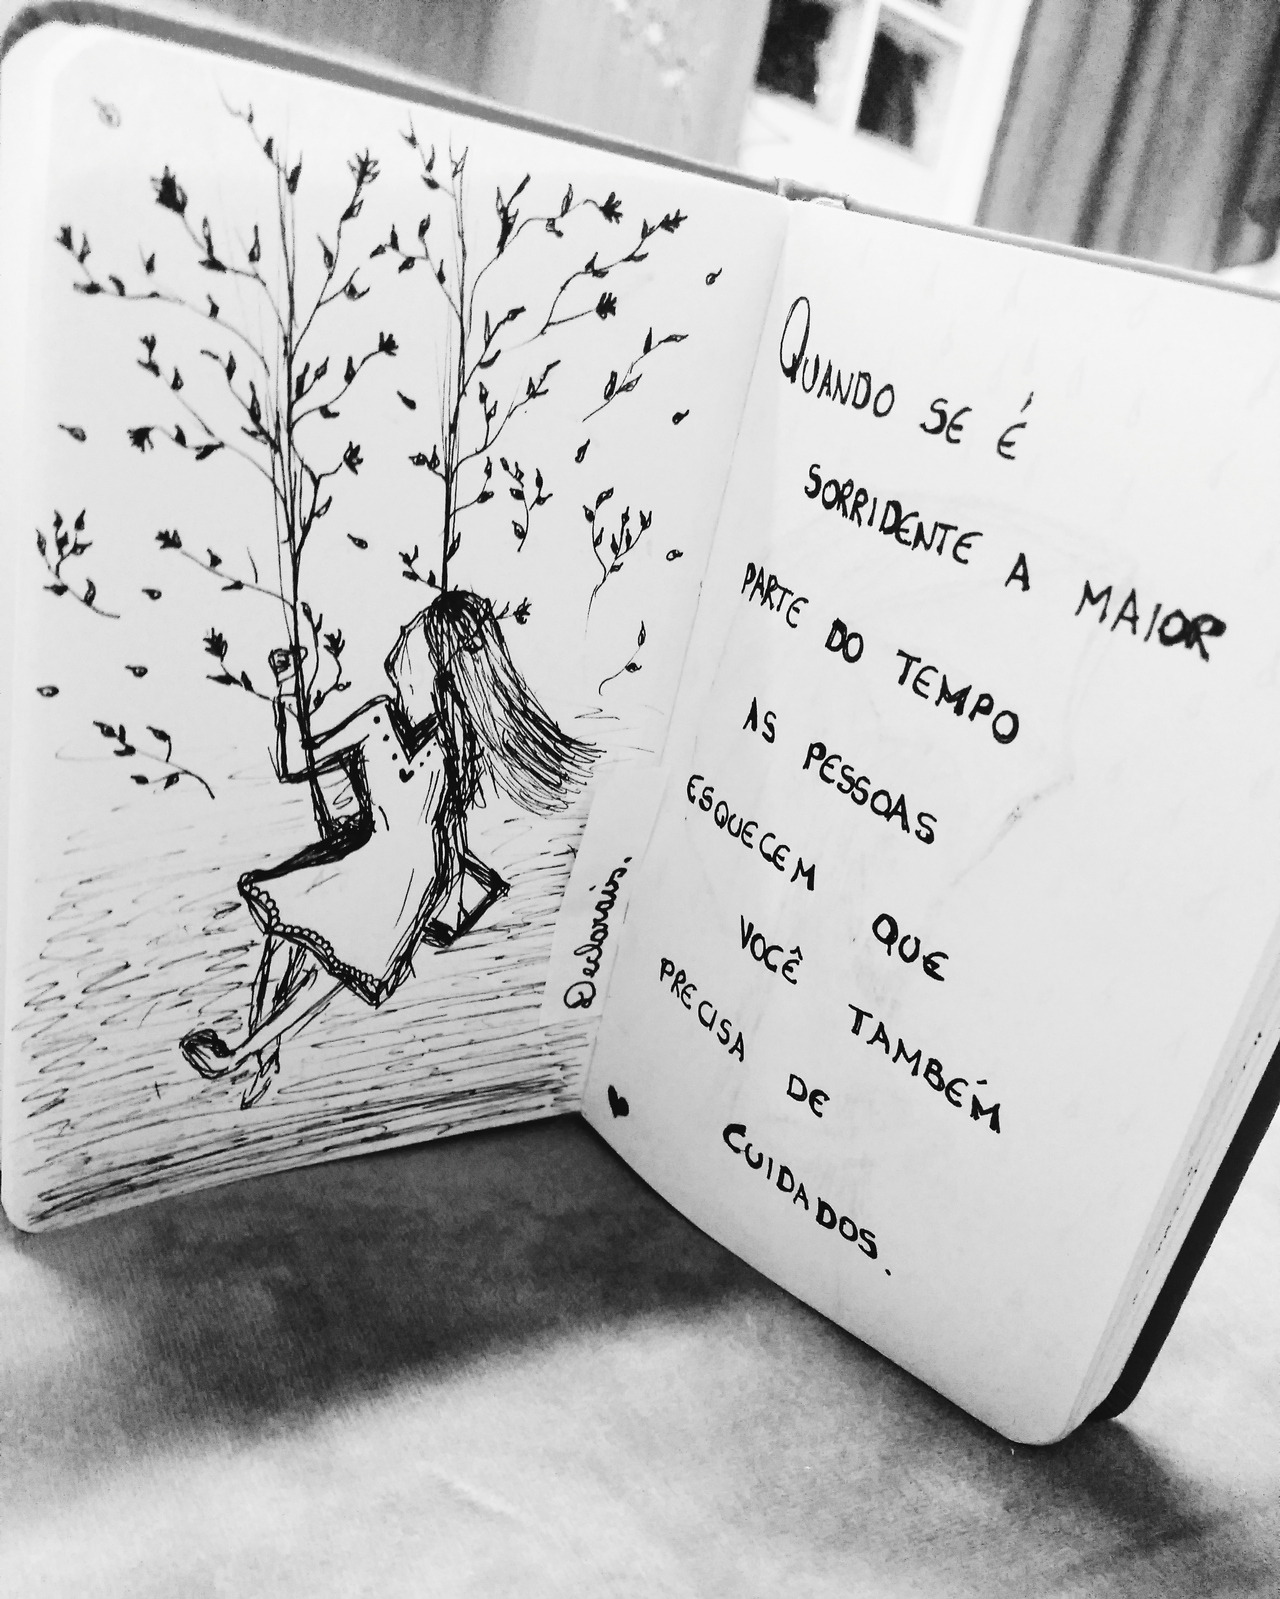 QUANDO SE É
SORRIDENTE A MAIOR
PARTE DO TEMPO
AS PESSOAS
ESQUECEM QUE
VOCÊ TAMBÉM
PRECISA DE
CUIDADOS.
Declarais.